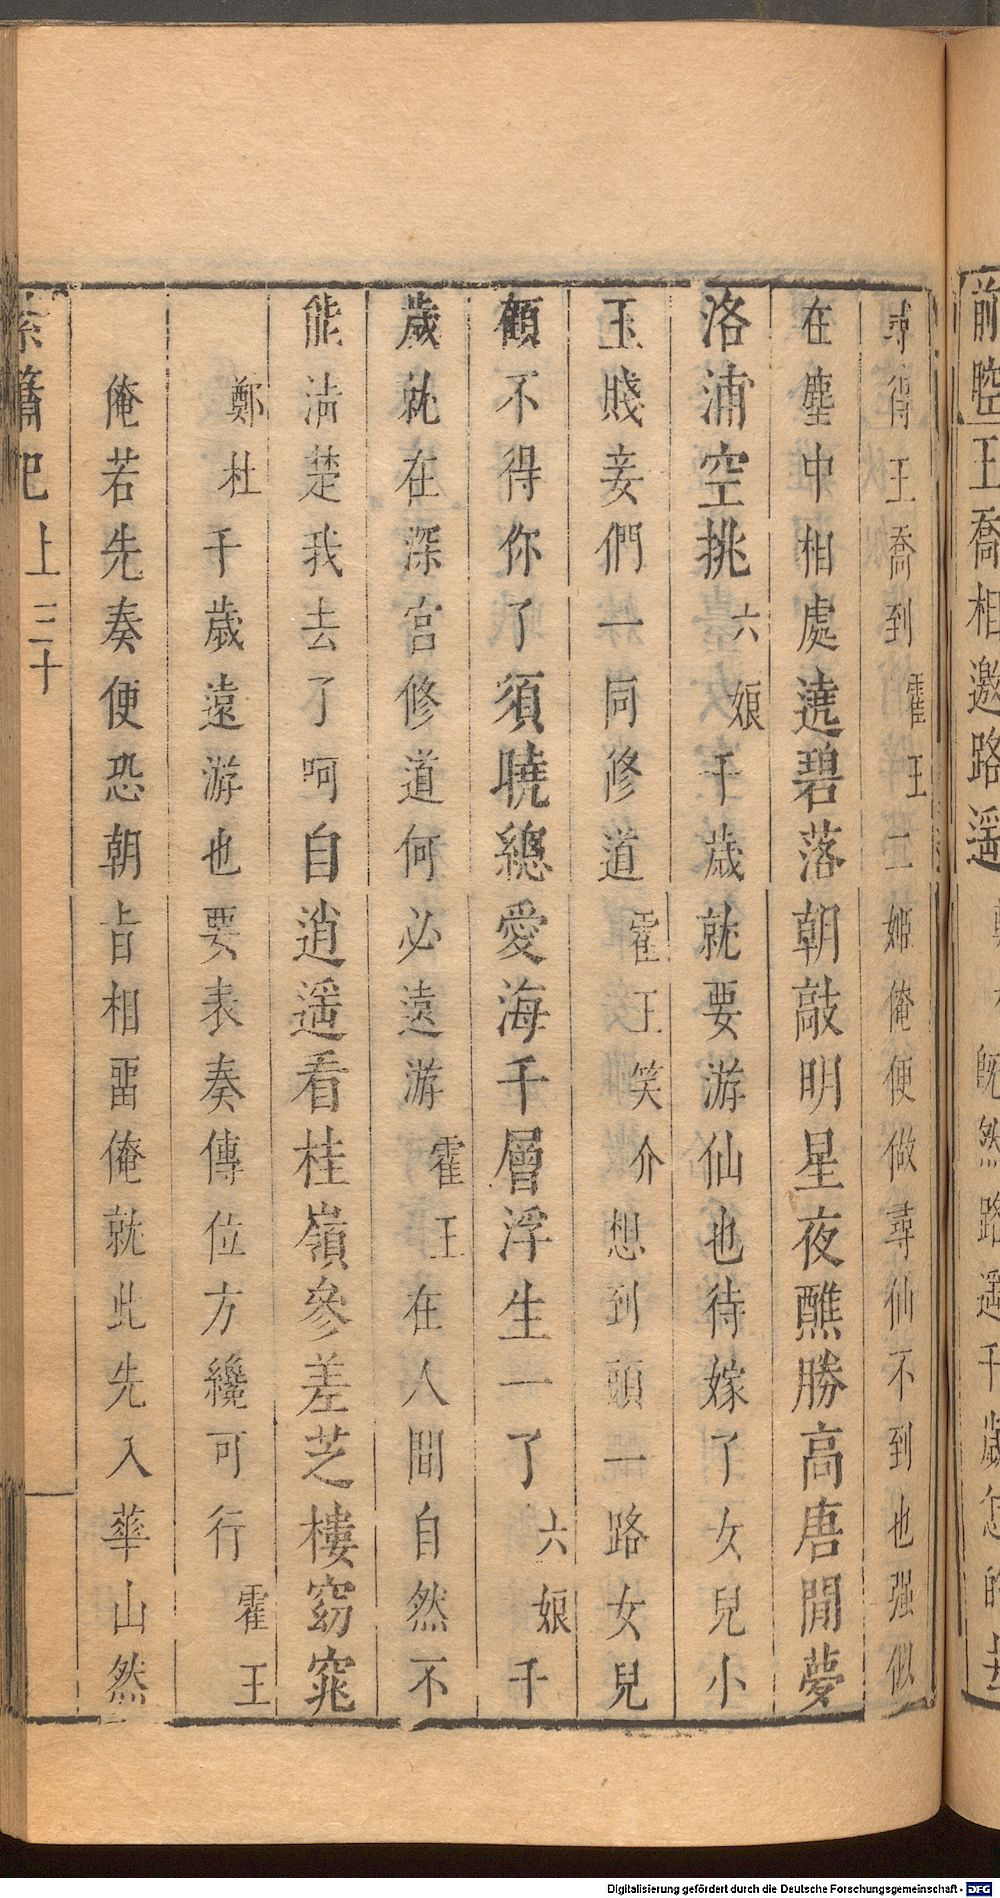 前腔 王喬相邀路遥
旣然路遥千歲怎的去
尋得王喬到霍王二姬俺便做尋仙不到也强似
在塵中相處遶碧落朝敲明星夜醮勝高唐閒夢
洛浦空挑六娘千歳就要游仙也待嫁了女兒小
玉賤妾們一同修道霍王笑介想到頭一路女兒
顧不得你了須曉總愛海千層浮生一了六娘千
歲就在深宮修道何必遠游霍王在人間自然不
能淸楚我去了呵自逍遥看桂嶺參差芝樓窈窕
鄭杜千歲遠游也要表奏傳位方纔可行霍王
俺若先奏便恐朝㫖相畱俺就此先入華山然
紫簫記 上 三十
Digitalisierung gefördert durch die Deutsche Forschungsgemeinschaft - DFG